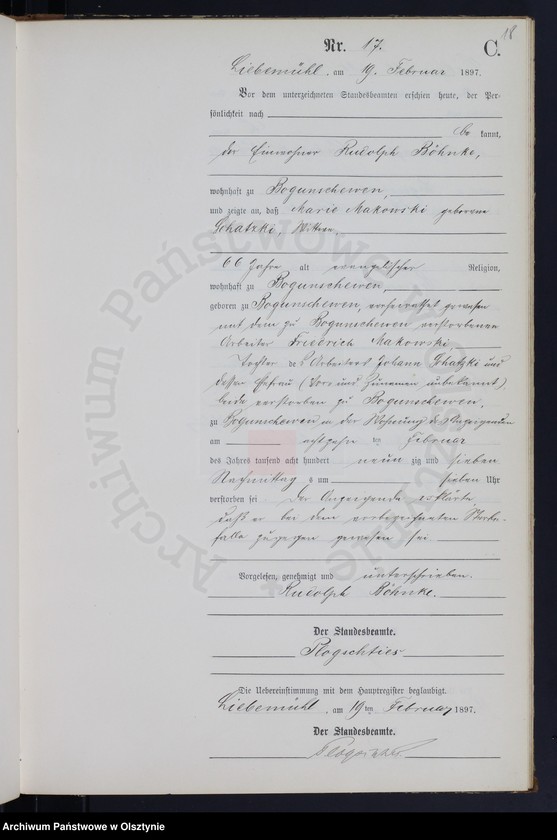 18
Nr. 17. C.
Liebemühl, am 19. Februar 1897.
Vor dem unterzeichneten Standesbeamten erschien heute, der Per-
sönlichkeit nach
be kannt,
der Einwohner Rudolph Böhnke,
wohnhaft zu Bogunschewen,
und zeigte an, daß Marie Makowski geborene
Schatzki, Witwe,
66 Jahre alt evangelischer Religion,
wohnhaft zu Bogunschewen,
geboren zu Bogunschewen, verheirathet gewesen
mit dem zu Bogunschewen verstorbenen
Arbeiter Friedrich Makowski
Tochter des Arbeiters Johann Schatzki und
dessen Ehefrau (Vor- und Zunamen unbekannt)
beide verstorben zu Bogunschewen,
zu Bogunschewen in der Wohnung des Anzeigenden
am achtzehn ten Februar
des Jahres tausend acht hundert neun zig und sieben
Nachmittag s um sieben Uhr
verstorben sei Der Anzeigende erklärte
daß er bei dem vorbezeichneten Sterbe-
falle zugegen gewesen sei
Vorgelesen, genehmigt und unterschrieben.
Rudolph Böhnke.
Der Standesbeamte.
Plogschties
Die Uebereinstimmung mit dem Hauptregister beglaubigt.
Liebemühl, am 19ten Februar 1897.
Der Standesbeamte.
Archiwum Państwowe w Olsztynie
Archiwum Państwowe w Olsztynie